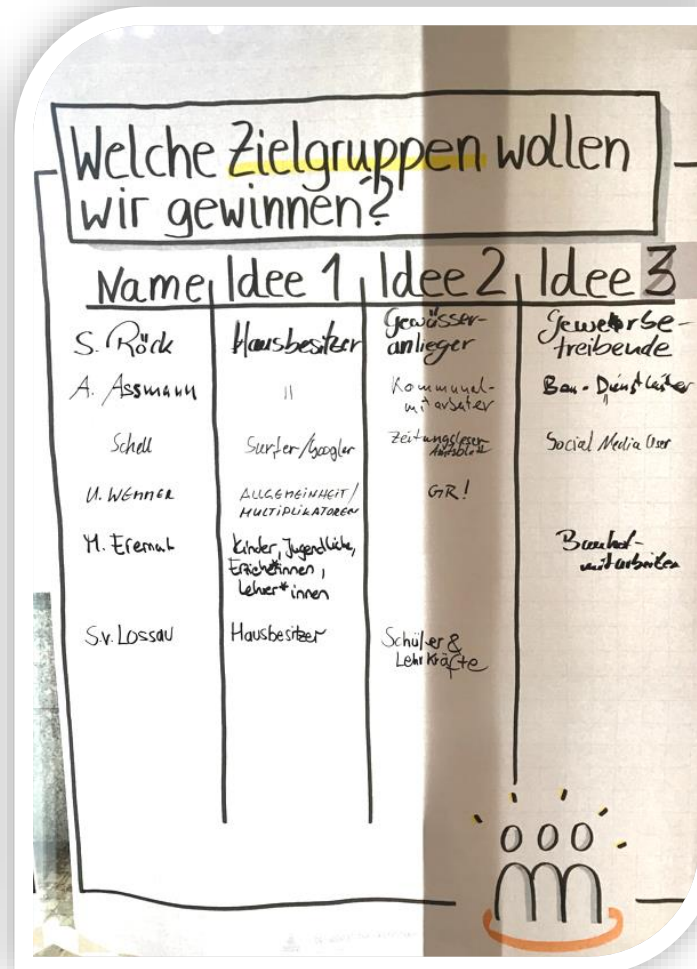 Welche Zielgruppen wollen
wir gewinnen?
Name Idee 1 Idee 2 Idee 3
S. Röck Hausbesitzer Gewässer-
anlieger Gewerbe-
treibende
A. Assmann " Kommunal-
mitarbeiter Bau-Dienstleister
Schell Surfer/Googler Zeitungsleser
Amtsblatt Social Media User
U. WENNER ALLGEMEINHEIT/
MULTIPLIKATOREN GR!
Kinder, Jugendliche,
Erzieher*innen,
Lehrer*innen Bauhof-
mitarbeiter
S.v. Lossau Hausbesitzer Schüler &
Lehrkräfte